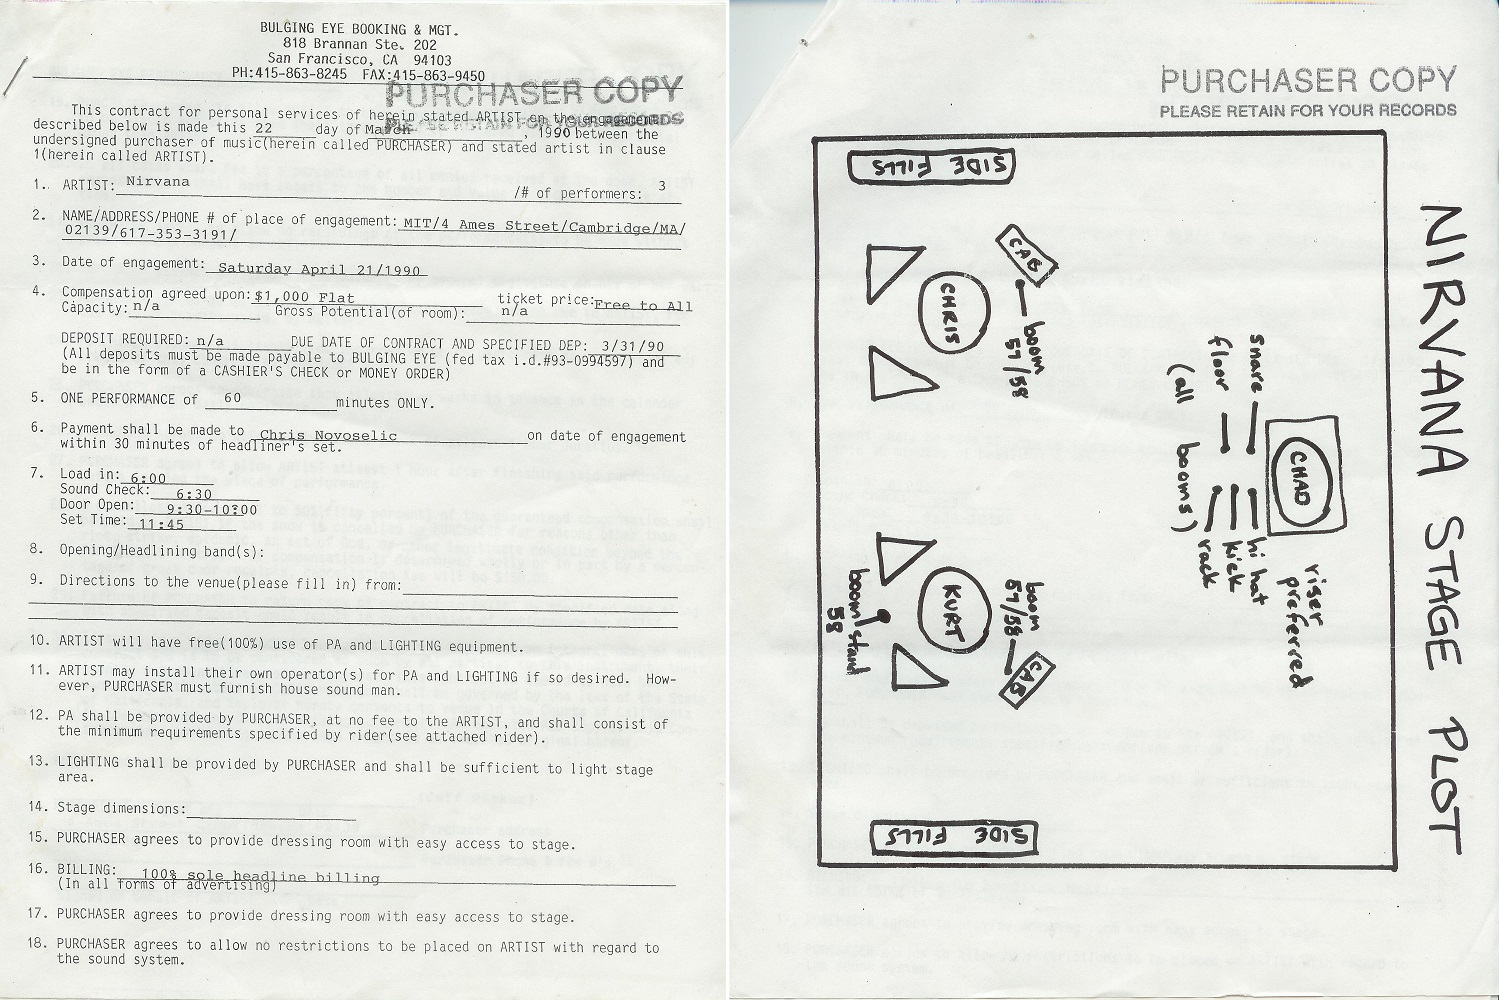 BULGING EYE BOOKING & MGT.
818 Brannan Ste. 202
San Francisco, CA 94103
PH:415-863-8245 FAX:415-863-9450
PURCHASER COPY
PLEASE RETAIN FOR YOUR RECORDS
This contract for personal services of herein stated ARTIST on the engagement
described below is made this 22 day of March, 1990 between the
undersigned purchaser of music(herein called PURCHASER) and stated artist in clause
1(herein called ARTIST).
1. ARTIST: Nirvana /# of performers: 3
2. NAME/ADDRESS/PHONE # of place of engagement: MIT/4 Ames Street/Cambridge/MA/
02139/617-353-3191/
3. Date of engagement: Saturday April 21/1990
4. Compensation agreed upon: $1,000 Flat ticket price: Free to All
Capacity: n/a Gross Potential(of room): n/a
DEPOSIT REQUIRED: n/a DUE DATE OF CONTRACT AND SPECIFIED DEP: 3/31/90
(All deposits must be made payable to BULGING EYE (fed tax i.d.#93-0994597) and
be in the form of a CASHIER'S CHECK or MONEY ORDER)
5. ONE PERFORMANCE of 60 minutes ONLY.
6. Payment shall be made to Chris Novoselic on date of engagement
within 30 minutes of headliner's set.
7. Load in: 6:00
Sound Check: 6:30
Door Open: 9:30-10:00
Set Time: 11:45
8. Opening/Headlining band(s):
9. Directions to the venue(please fill in) from:
10. ARTIST will have free(100%) use of PA and LIGHTING equipment.
11. ARTIST may install their own operator(s) for PA and LIGHTING if so desired. How-
ever, PURCHASER must furnish house sound man.
12. PA shall be provided by PURCHASER, at no fee to the ARTIST, and shall consist of
the minimum requirements specified by rider(see attached rider).
13. LIGHTING shall be provided by PURCHASER and shall be sufficient to light stage
area.
14. Stage dimensions:
15. PURCHASER agrees to provide dressing room with easy access to stage.
16. BILLING: 100% sole headline billing
(In all forms of advertising)
17. PURCHASER agrees to provide dressing room with easy access to stage.
18. PURCHASER agrees to allow no restrictions to be placed on ARTIST with regard to
the sound system.
PURCHASER COPY
PLEASE RETAIN FOR YOUR RECORDS
NIRVANA STAGE PLOT
SIDE FILLS
CAB
CHRIS
boom
57/58
snare
floor
(all
booms)
CHAD
hi hat
kick
rack
riser
preferred
KURT
boom
57/58
CAB
boom stand
58
SIDE FILLS